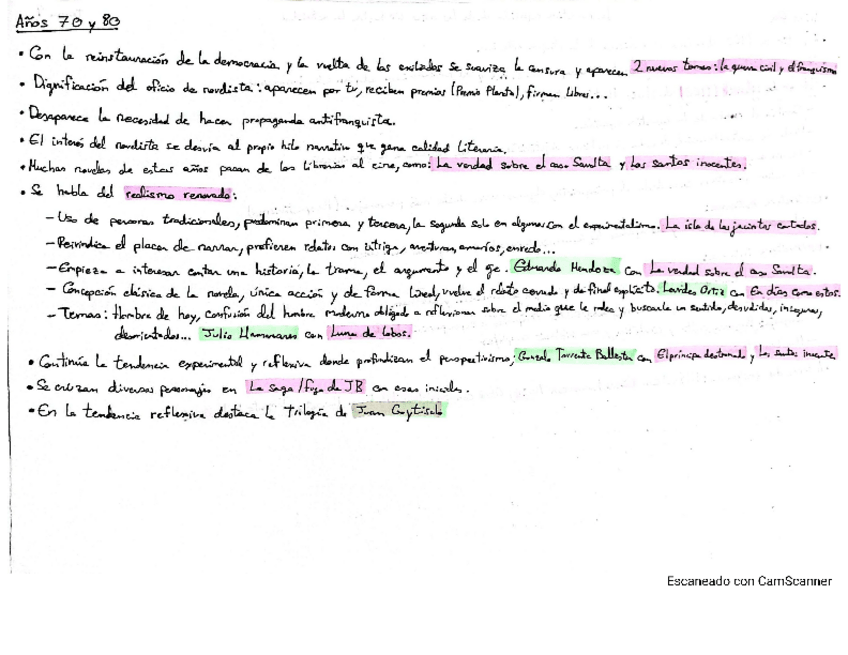 Años 70 y 80
• Con la reinstauración de la democracia y la vuelta de los exiliados se suaviza la censura y aparecen 2 nuevos temas: la guerra civil y el franquismo
• Dignificación del oficio de novelista: aparecen por tv, reciben premios (Premio Planeta), firman libros...
• Desaparece la necesidad de hacer propaganda antifranquista.
• El interés del novelista se desvía al propio hilo narrativo que gana calidad literaria.
• Muchas novelas de estos años pasan de las librerías al cine, como: La verdad sobre el caso Savolta y Los santos inocentes.
• Se habla del realismo renovado:
– Uso de personas tradicionales, predominan primera y tercera, la segunda solo en algunas con el experimentalismo. La isla de los jacintos cortados.
– Reivindica el placer de narrar, prefieren relatos con intriga, aventuras, amoríos, enredo...
– Empieza a interesar contar una historia, la trama, el argumento y el eje. Eduardo Mendoza con La verdad sobre el caso Savolta.
– Concepción clásica de la novela, única acción y de forma lineal, vuelve el relato cerrado y de final explícito. Lourdes Ortiz con En días como estos.
– Temas: Hombre de hoy, confusión del hombre moderno obligado a reflexionar sobre el medio que le rodea y buscarle un sentido, desvalidos, inseguros,
desorientados... Julio Llamazares con Luna de lobos.
• Continúa la tendencia experimental y reflexiva donde profundizan el perspectivismo; Gonzalo Torrente Ballester con El príncipe destronado y Los santos inocentes
• Se cruzan diversos personajes en La saga/fuga de JB con esas iniciales.
• En la tendencia reflexiva destaca la trilogía de Juan Goytisolo
Escaneado con CamScanner